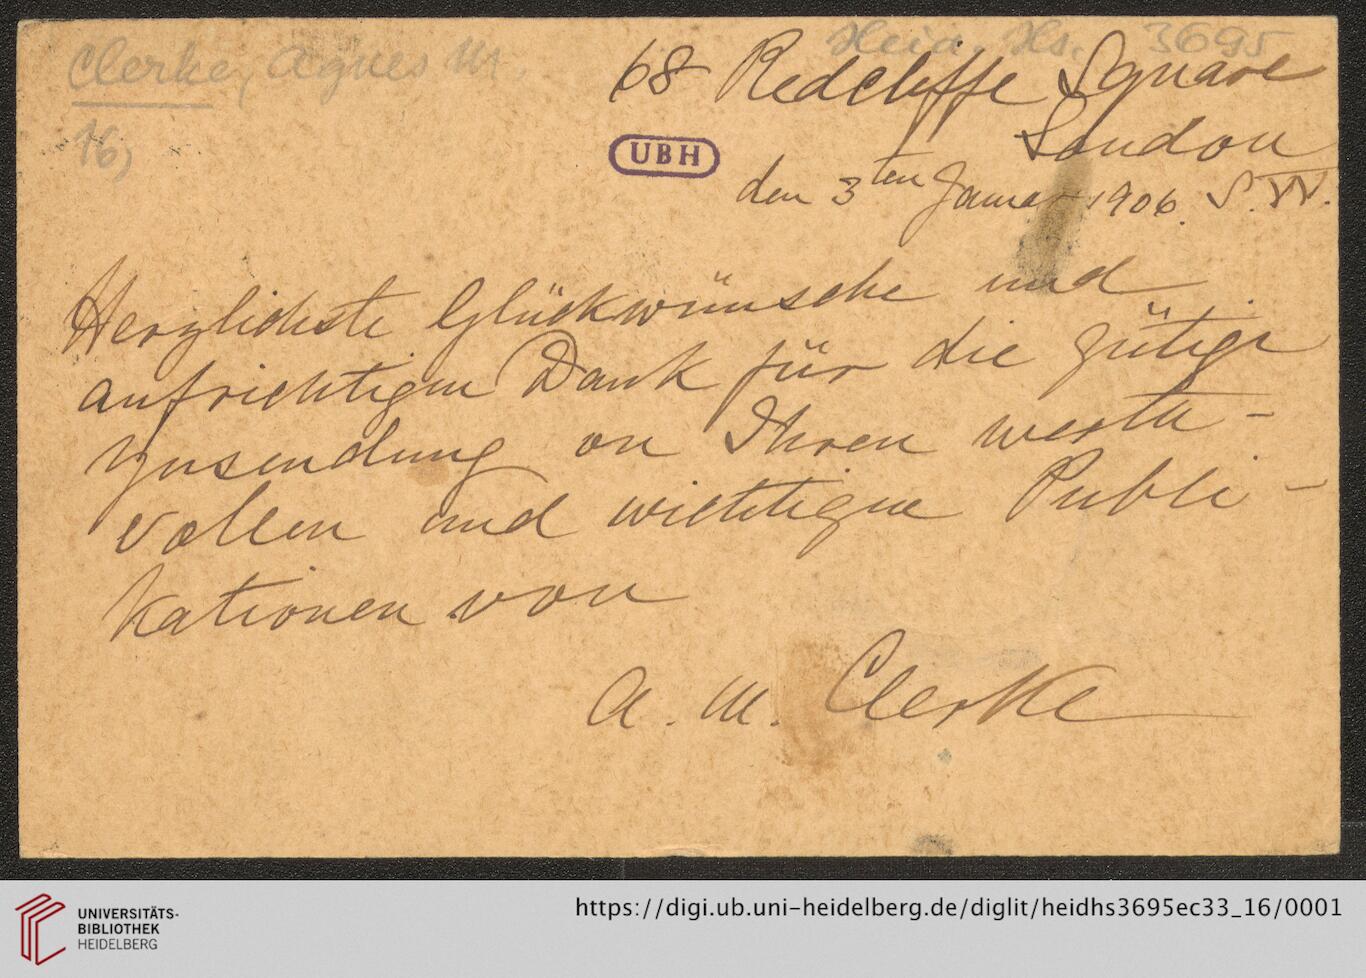 Clerke, Agnes M.
Heid. Hs. 3695
16)
68 Redcliffe Square
London
S.W.
UBH
den 3ten Januar 1906.
Herzlichste Glückwünsche und
aufrichtigen Dank für die gütige
Zusendung on Ihren werth-
vollen und wichtigen Publi-
kationen von
A. M. Clerke
UNIVERSITÄTS-
BIBLIOTHEK
HEIDELBERG
https://digi.ub.uni-heidelberg.de/diglit/heidhs3695ec33_16/0001